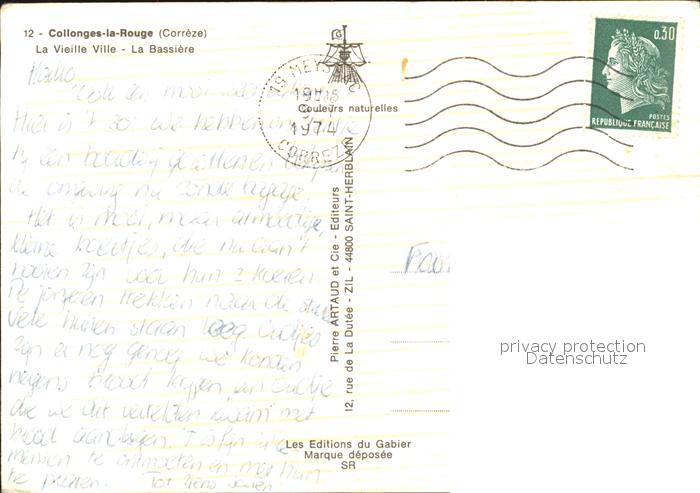 12 - Collonges-la-Rouge (Corrèze)
La Vieille Ville - La Bassière
Hallo
Ook zo'n mooi weer
Hier is 't zo. We hebben
bij een boerderij
de omgeving nu zonder bagage.
Het is mooi, maar armoedige,
kleine boertjes, die nu aan 't
hooien zijn voor hun 2 koeien.
De jongeren trekken naar de stad.
Vele huizen staan leeg. Oudjes
zijn er nog genoeg. We konden
nergens brood krijgen, een oudje
die we dit vertelden kwam met
brood aandragen. 't Is fijn
mensen te ontmoeten en met hun
te praten. Tot ziens
Couleurs naturelles
Pierre ARTAUD et Cie - Editeurs
12, rue de La Dutée - ZIL - 44800 SAINT-HERBLAIN
Les Editions du Gabier
Marque déposée
SR
19 MEYSSAC
19H15
1974
CORREZE
0,30
POSTES
REPUBLIQUE FRANÇAISE
Fam
privacy protection
Datenschutz